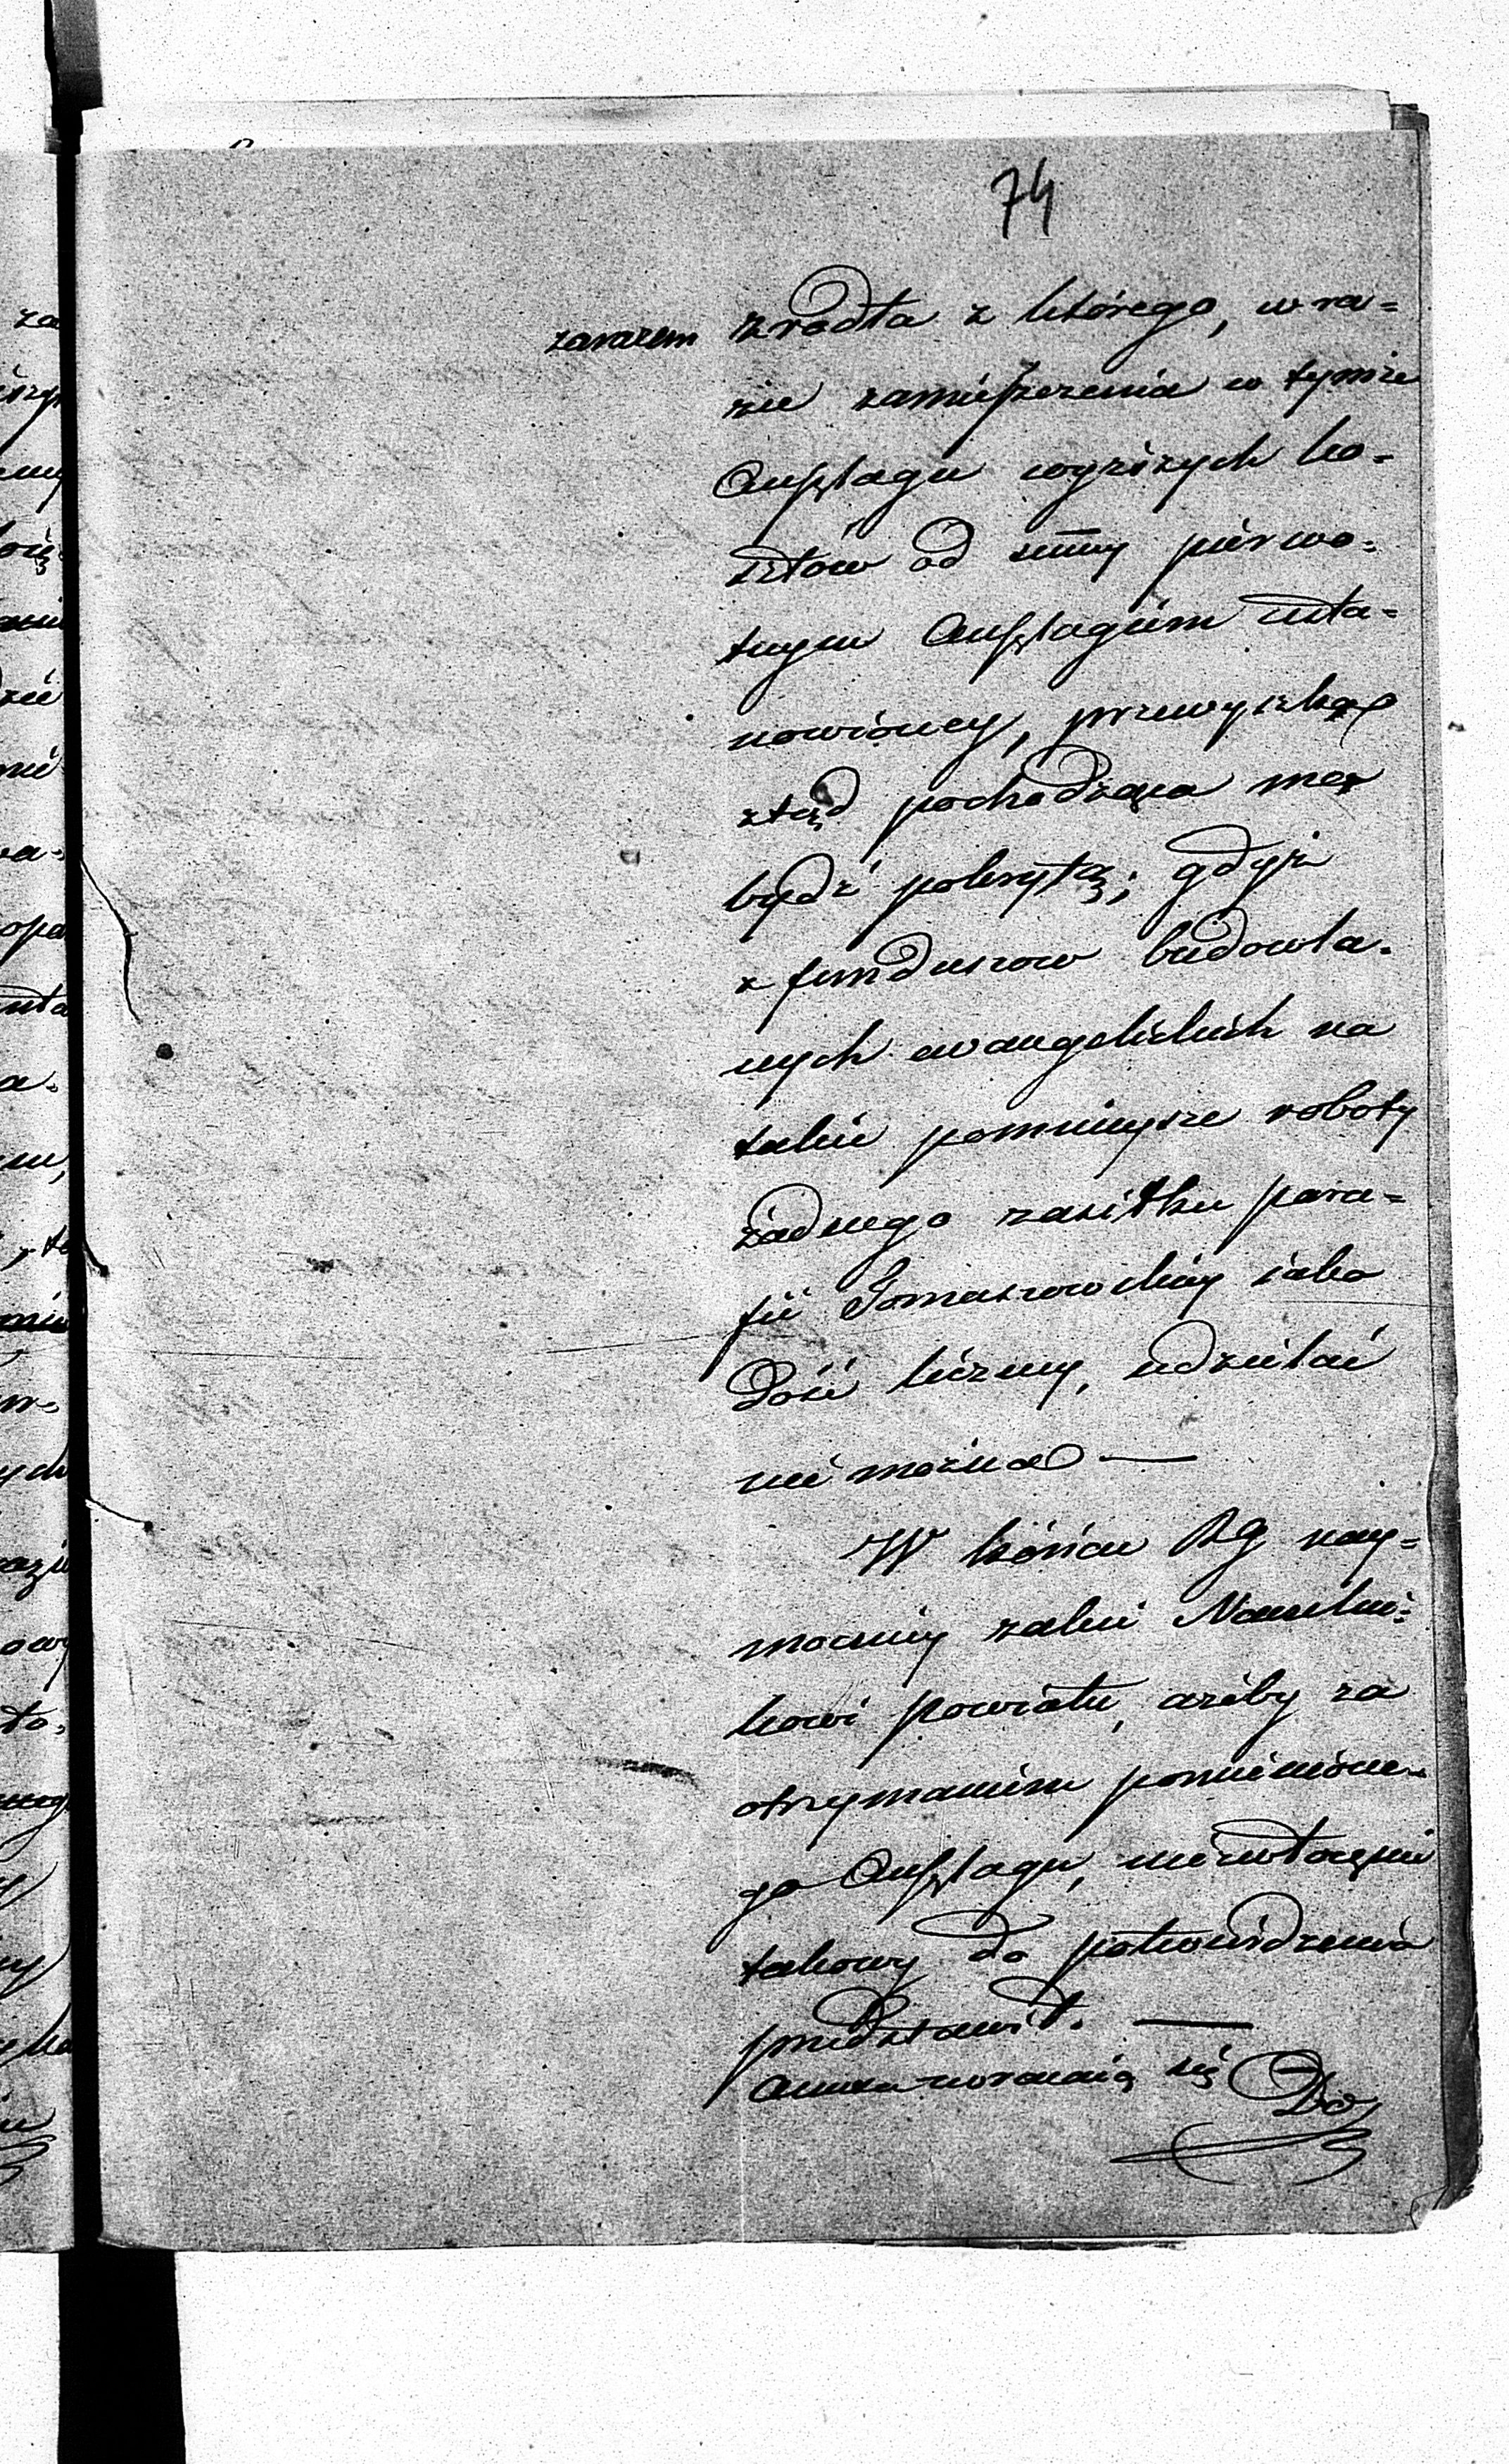 74
zarazem źrodła z którego, w ra=
zie zamieszczenia w tymże
Anszlagu wyższych ko=
sztów od summy pierwo=
tnym Anszlagiem usta=
nowioney, przewyżka
ztąd pochodząca ma
bydź pokrytą; gdyż
z funduszow budowla=
nych ewangelickich na
takie pomnieysze roboty
żadnego zasiłku para=
fii Tomaszowskiey iako
dość liczney, udzielać
nie można —
W końcu RG nay=
mocniey zaleca Naczelni=
kowi powiatu, ażeby za
otrzymaniem pomienione=
go Anszlagu, niezwłocznie
takowy do potwierdzenia
przedstawił. —
się Do